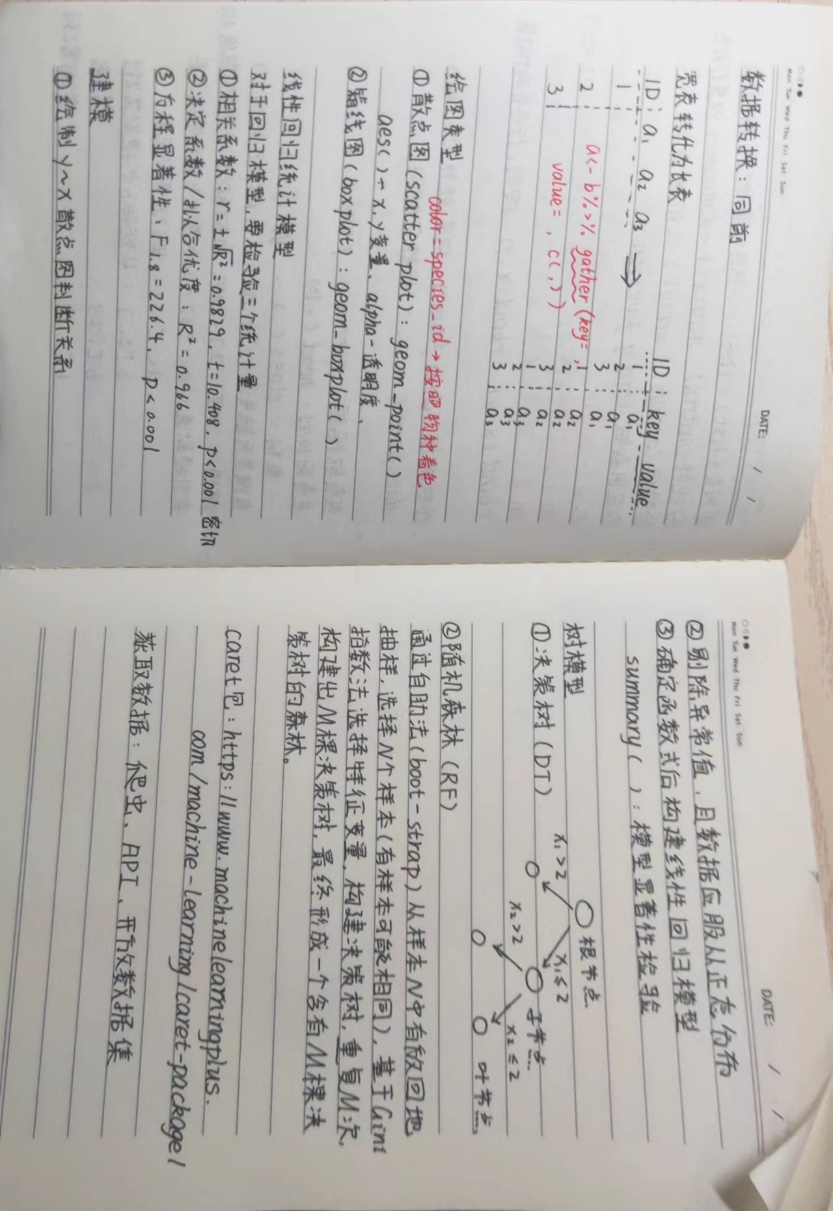 Mon Tue Wed Thu Fri Sat Sun
DATE: / /
数据转换：同前
宽表转化为长表
ID: a₁ a₂ a₃ → ID: key value
1 1 a₁
2 2 a₁
3 3 a₁
a<- b%>% gather (key= ,
value= , c( , ))
1
2 a₂
3 a₂
1 a₂
2 a₃
3 a₃
a₃
绘图类型 color=species_id→按照物种着色
① 散点图(scatter plot): geom_point()
aes()→x,y变量、alpha-透明度、
② 箱线图(boxplot): geom_boxplot( )
线性回归统计模型
对于回归模型,要检验三个统计量
① 相关系数: r=±√R²=0.9829, t=10.408, p<0.001 密切
② 决定系数/拟合优度: R²=0.966
③ 方程显著性: F1,8=226.4, p<0.001
建模
① 绘制y~x散点图判断关系
Mon Tue Wed Thu Fri Sat Sun
DATE: / /
② 剔除异常值,且数据应服从正态分布
③ 确定函数式后构建线性回归模型
summary( ): 模型显著性检验
树模型
① 决策树(DT)
根节点
x₁>2 x₁≤2
子节点
x₂>2 x₂≤2
叶节点
② 随机森林(RF)
通过自助法(boot-strap)从样本N中有放回地
抽样,选择N个样本(有样本可能相同),基于Gini
指数法选择特征变量,构建决策树,重复M次,
构建出M棵决策树,最终形成一个含有M棵决
策树的森林。
caret包: https://www.machinelearningplus.
com/machine-learning/caret-package/
获取数据: 爬虫、API、开放数据集